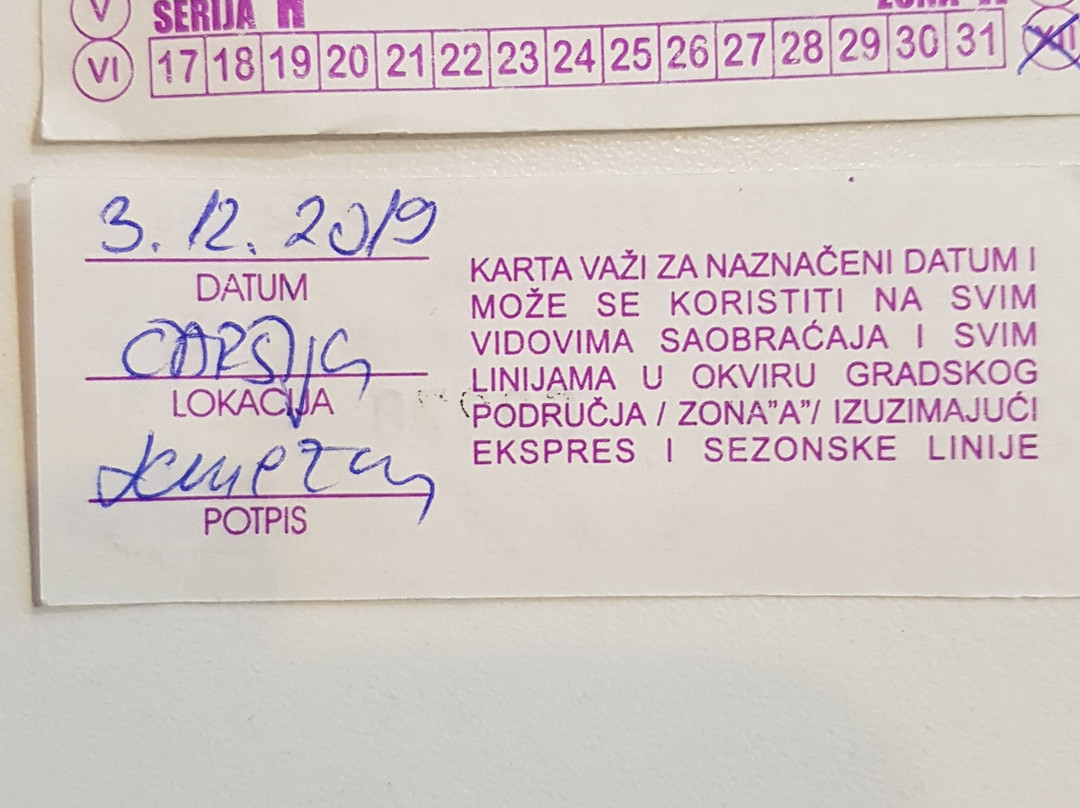 V SERIJA
VI 17 18 19 20 21 22 23 24 25 26 27 28 29 30 31
3. 12. 2019
DATUM
LOKACIJA
POTPIS
KARTA VAŽI ZA NAZNAČENI DATUM I
MOŽE SE KORISTITI NA SVIM
VIDOVIMA SAOBRAĆAJA I SVIM
LINIJAMA U OKVIRU GRADSKOG
PODRUČJA / ZONA"A"/ IZUZIMAJUĆI
EKSPRES I SEZONSKE LINIJE